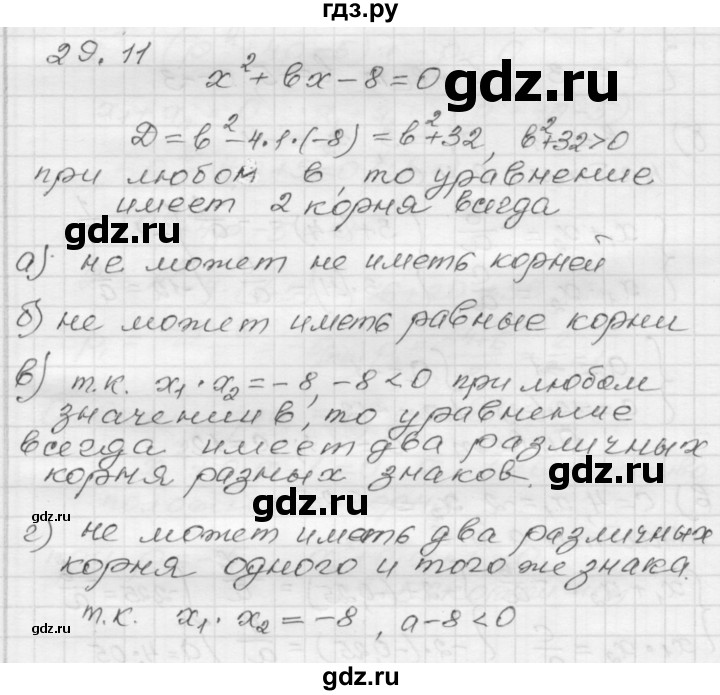 гдз.ру
29.11
x² + bx - 8 = 0
gdz.ru
D = b² - 4·1·(-8) = b² + 32, b² + 32 > 0
при любом b, то уравнение
имеет 2 корня всегда
gdz.ru
а) не может не иметь корней
б) не может иметь равные корни
в) т.к. x₁ · x₂ = -8, -8 < 0 при любом
значении b, то уравнение
всегда имеет два различных
корня разных знаков.
gdz.ru
gdz.ru
г) не может иметь два различных
корня одного и того же знака.
т.к. x₁ · x₂ = -8, а -8 < 0
gdz.ru
gdz.ru
gdz.ru